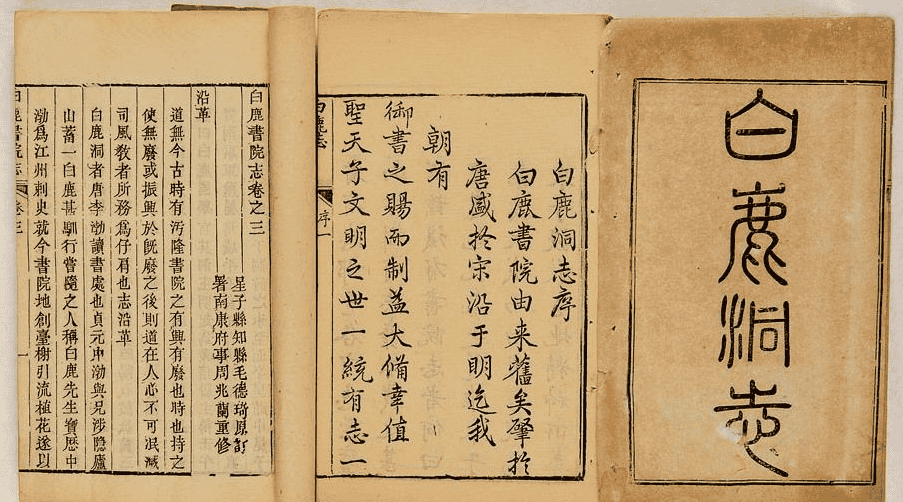 白鹿洞志
白鹿洞志序
白鹿書院由来舊矣肇於
唐盛於宋沿于明迄我
朝有
御書之賜而制益大備幸值
聖天子文明之世一統有志一
白鹿志
序一
白鹿書院志卷之三
星子縣知縣毛德琦原訂
署南康府事周兆蘭重修
沿革
道無今古時有汚隆書院之有興有廢也時也持之
使無廢或振興於旣廢之後則道在人心不可泯滅
司風敎者所務爲仔肩也志沿革
白鹿洞者唐李渤讀書處也貞元中渤與兄涉隱廬
山蓄一白鹿甚馴行嘗隨之人稱白鹿先生寶歷中
渤爲江州刺史就今書院地創臺榭引流植花遂以
白鹿書院志
卷三
一